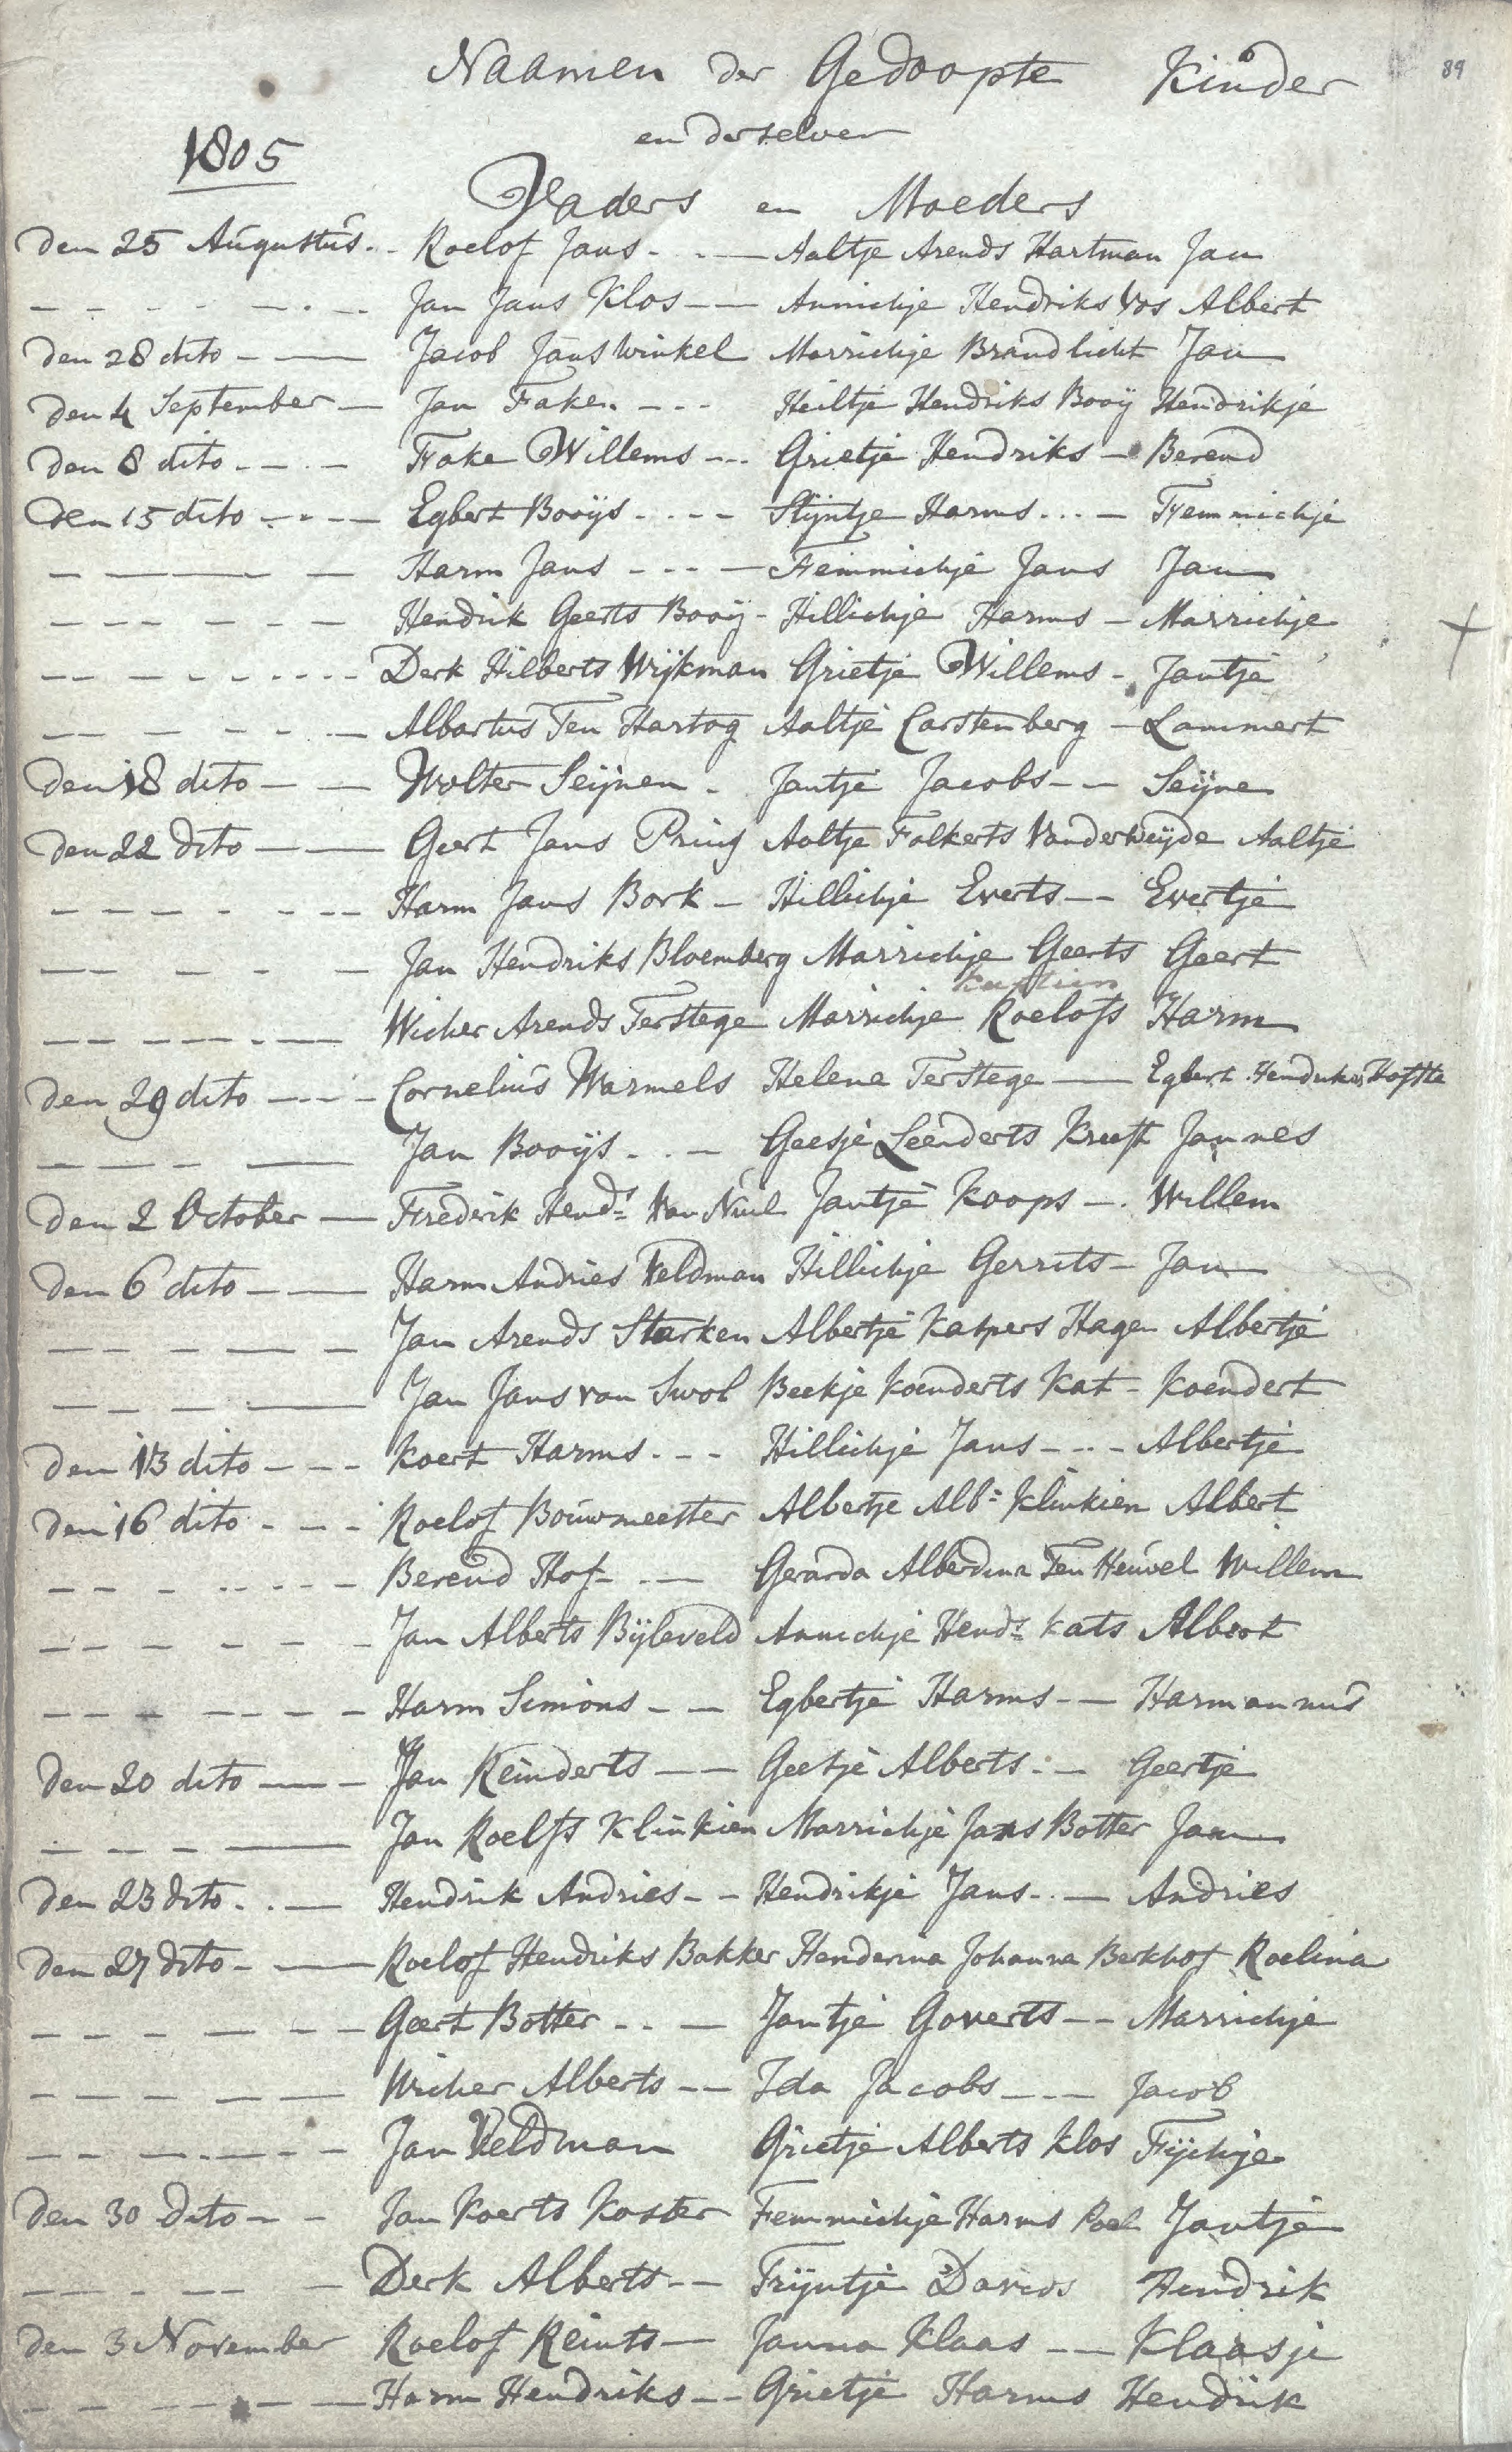 Naamen der Gedoopte Kinder
89
en derselver
1805
Vaders en Moeders
den 25 Augustus - Roelof Jans - Aaltje Arends Hartman Jan
Jan Jans Klos - Annichje Hendriks Vos Albert
den 28 dito - Jacob Jans Winkel Marrichje Brandlicht Jan
den 4 September - Jan Faken - Heiltje Hendriks Booÿ Hendrikje
den 8 dito - Fake Willems - Grietje Hendriks - Berend
den 15 dito - Egbert Booÿs - Stijntje Harms - Femmichje
Harm Jans - Femmichje Jans Jan
Hendrik Geerts Booÿ - Hillichje Harms - Marrichje
Derk Hilberts Wijkman Grietje Willems - Jantje
Albartus Ten Hartog Aaltje Carstenberg - Lammert
den 18 dito - Wolter Seijnen - Jantje Jacobs - Seijne
den 22 dito - Geert Jans Prins Aaltje Folkerts Vanderweijde Aaltje
Harm Jans Bork - Hillichje Everts - Evertje
Jan Hendriks Bloemberg Marrichje Geerts Geert
Wicher Arends Terstege Marrichje Roelofs Harm
den 29 dito - Cornelius Warmels Helena Terstege - Egbert Hendrikus Hofste
Jan Booÿs - Geesje Leenderts Kreeft Jannes
den 2 October - Frederik Hends Van Nuil Jantje Koops - Willem
den 6 dito - Harm Andries Veldman Hillichje Gerrits - Jan
Jan Arends Starken Albertje Kaspers Hagen Albertje
Jan Jans van Swol Beekje Koenderts Kat - Koendert
den 13 dito - Koert Harms - Hillichje Jans - Albertje
den 16 dito - Roelof Bouwmeester Albertje Alb: Klinkien Albert
Berend Hof - Gerarda Alberdina Ten Heuvel Willem
Jan Alberts Bijleveld Annichje Hends Kats Albert
Harm Simons - Egbertje Harms - Harmannus
den 20 dito - Jan Reinderts - Geesje Alberts - Geertje
Jan Roelfs Klinkien Marrichje Jans Botter Jan
den 23 dito - Hendrik Andries - Hendrikje Jans - Andries
den 27 dito - Roelof Hendriks Bakker Henderina Johanna Berkhof Roelina
Geert Botter - Jantje Goverts - Marrichje
Wicher Alberts - Ida Jacobs - Jacob
Jan Veldman Grietje Alberts Klos Fijchje
den 30 dito - Jan Koerts Koster Femmichje Harms Poel Jantje
Derk Alberts - Trijntje Davids Hendrik
den 3 November Roelof Reints - Janna Klaas - Klaasje
Harm Hendriks - Grietje Harms Hendrik